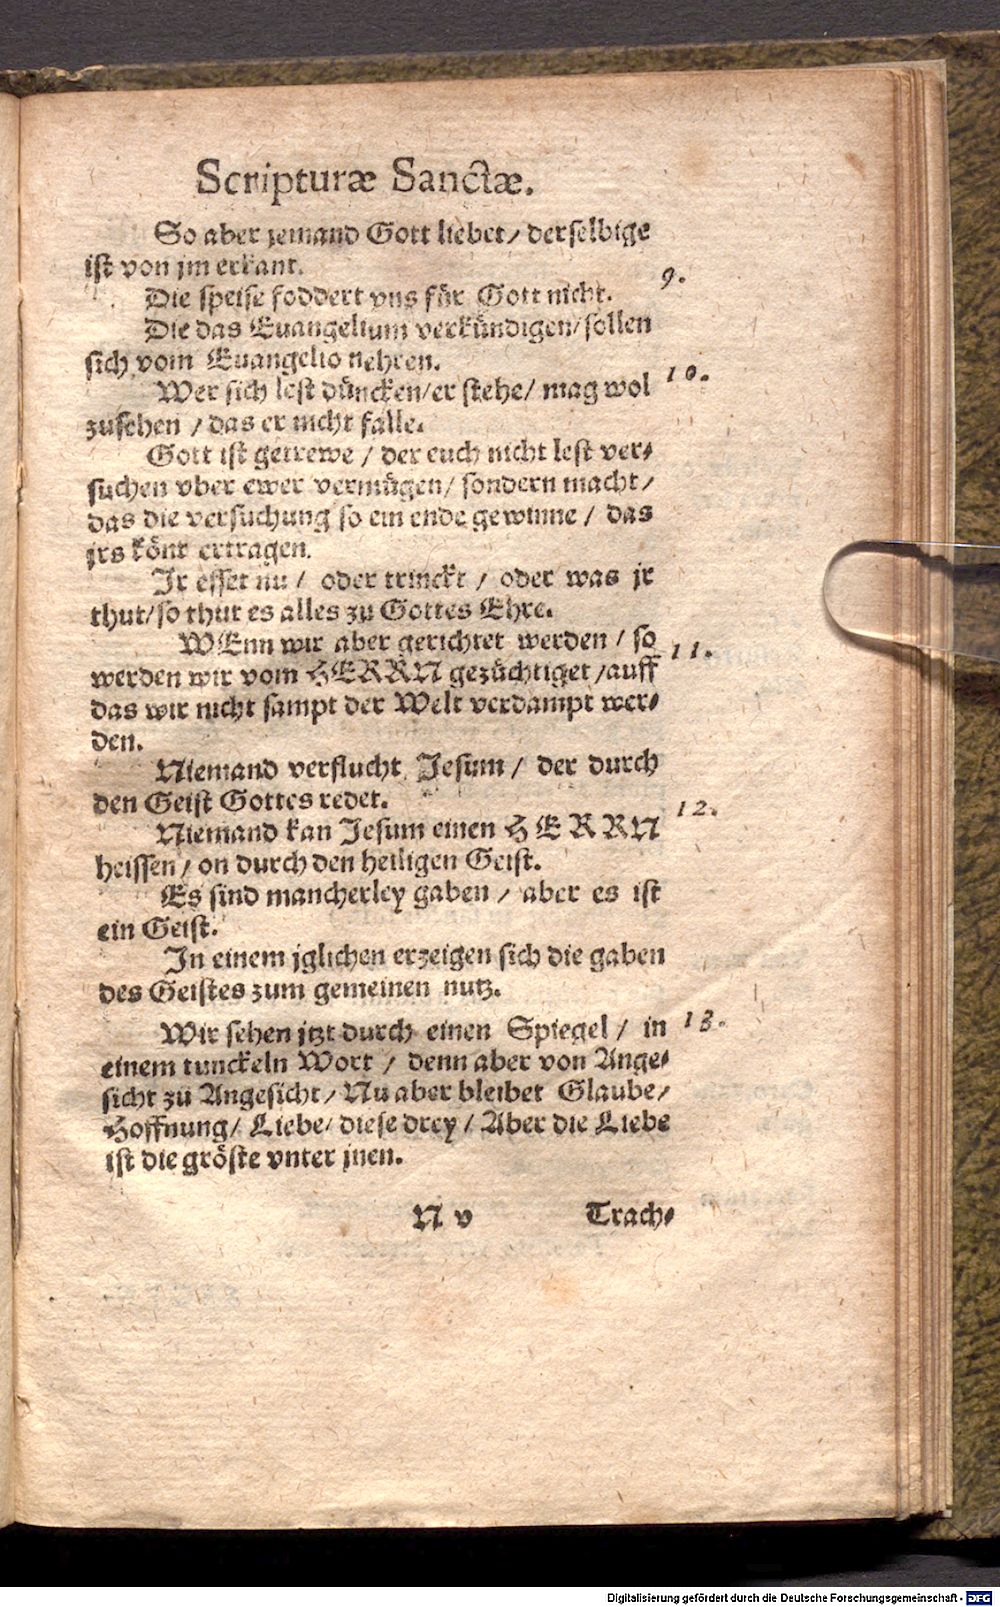 Scripturæ Sanctæ.
So aber jemand Gott liebet/ derselbige
ist von jm erkant.
9.
Die speise foddert vns für Gott nicht.
Die das Euangelium verkündigen/ sollen
sich vom Euangelio nehren.
10.
Wer sich lest düncken/er stehe/ mag wol
zusehen / das er nicht falle.
Gott ist getrewe / der euch nicht lest ver⸗
suchen vber ewer vermügen/ sondern macht/
das die versuchung so ein ende gewinne / das
jrs könt ertragen.
Jr esset nu / oder trinckt / oder was jr
thut/so thut es alles zu Gottes Ehre.
WEnn wir aber gerichtet werden / so
11.
werden wir vom HERRN gezüchtiget /auff
das wir nicht sampt der Welt verdampt wer⸗
den.
Niemand verflucht Jesum / der durch
den Geist Gottes redet.
12.
Niemand kan Jesum einen HERRN
heissen / on durch den heiligen Geist.
Es sind mancherley gaben / aber es ist
ein Geist.
In einem jglichen erzeigen sich die gaben
des Geistes zum gemeinen nutz.
Wir sehen jtzt durch einen Spiegel / in
13.
einem tunckeln Wort / denn aber von Ange⸗
sicht zu Angesicht/ Nu aber bleibet Glaube/
Hoffnung/ Liebe/ diese drey / Aber die Liebe
ist die gröste vnter jnen.
N v
Trach⸗
Digitalisierung gefördert durch die Deutsche Forschungsgemeinschaft - DFG